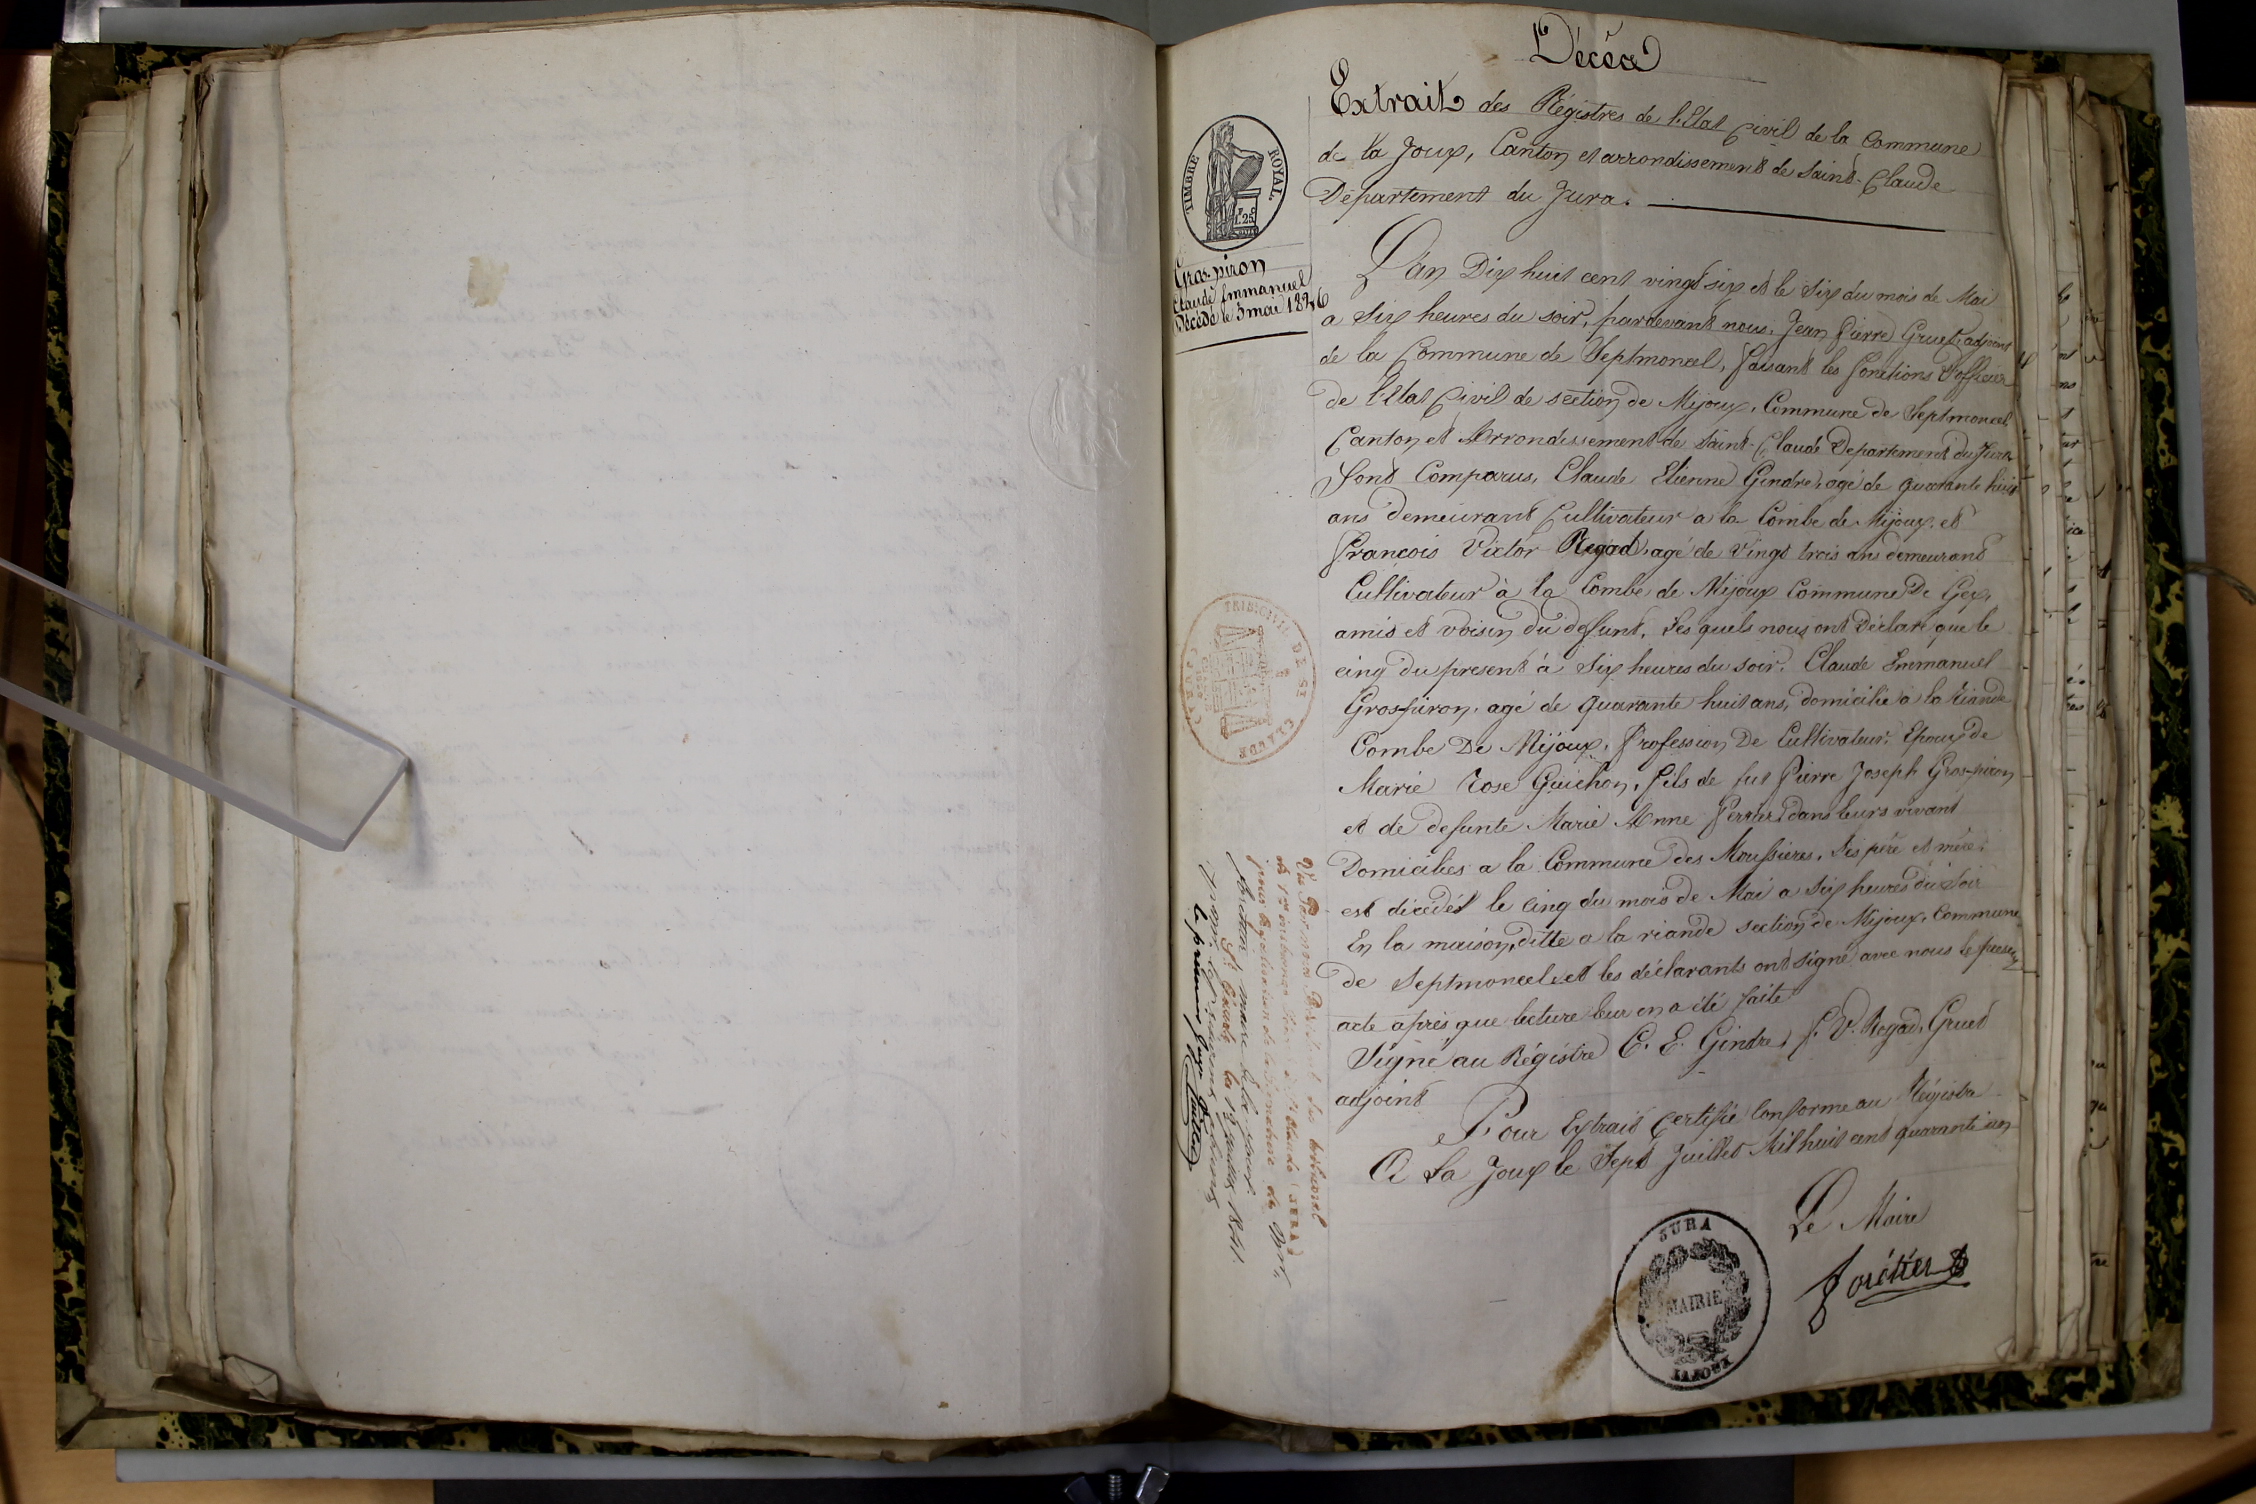 Décès
Extrait des Régistres de l'Etat Civil de la Commune
de la Joux, Canton et arrondissement de Saint-Claude
Département du Jura.
TIMBRE ROYAL
1.25
Gros-piron
Claude Emmanuel
Décédé le 5 mai 1826
L'an Dix huit cent vingt six et le Six du mois de Mai
a Six heures du soir, pardevant nous, Jean Pierre Gruet, adjoint
de la Commune de Septmoncel, faisant les fonctions d'officier
de l'Etat Civil de section de Mijoux, Commune de Septmoncel
Canton et Arrondissement de Saint-Claude Département du Jura
Sont Comparus, Claude Etienne Gindre, agé de quarante huit
ans demeurant Cultivateur a la Combe de Mijoux, et
François Victor Regad, agé de Vingt trois ans demeurant
Cultivateur à la Combe de Mijoux Commune De Gex,
amis et voisin du defunt, Les quels nous ont Déclaré que le
cinq du present à Six heures du soir, Claude Emmanuel
Gros-piron, agé de quarante huit ans, domicilié a la riande
Combe De Mijoux, Profession De Cultivateur, Epoux de
Marie Rose Guichon, fils de fut Pierre Joseph Gros-piron
et de defunte Marie Anne Perrier dans leurs vivant
Domiciliés a la Commune des Moussières, Ses père et mère;
est décédét le cinq du mois de Mai a Six heures du Soir
En la maison, ditte a la riande section de Mijoux, Commune
de Septmoncel et les déclarants ont signé avec nous le présent
acte après que lecture leur en a été faite
Signé au Régistre C. E. Gindre, F. V. Regad, Gruet
adjoint
Pour Extrait Certifié Conforme au Régistre
A La Joux le Sept Juillet Mil huit cent quarante un
Le Maire
JURA
MAIRIE
LAJOUX
TRIB. CIVIL DE ST CLAUDE
Vu Par nous Président du tribunal
de 1re instance de St Claude (JURA)
pour légalisation de la signature de Mr
maire de la joux
St Claude le 13 juillet 1841